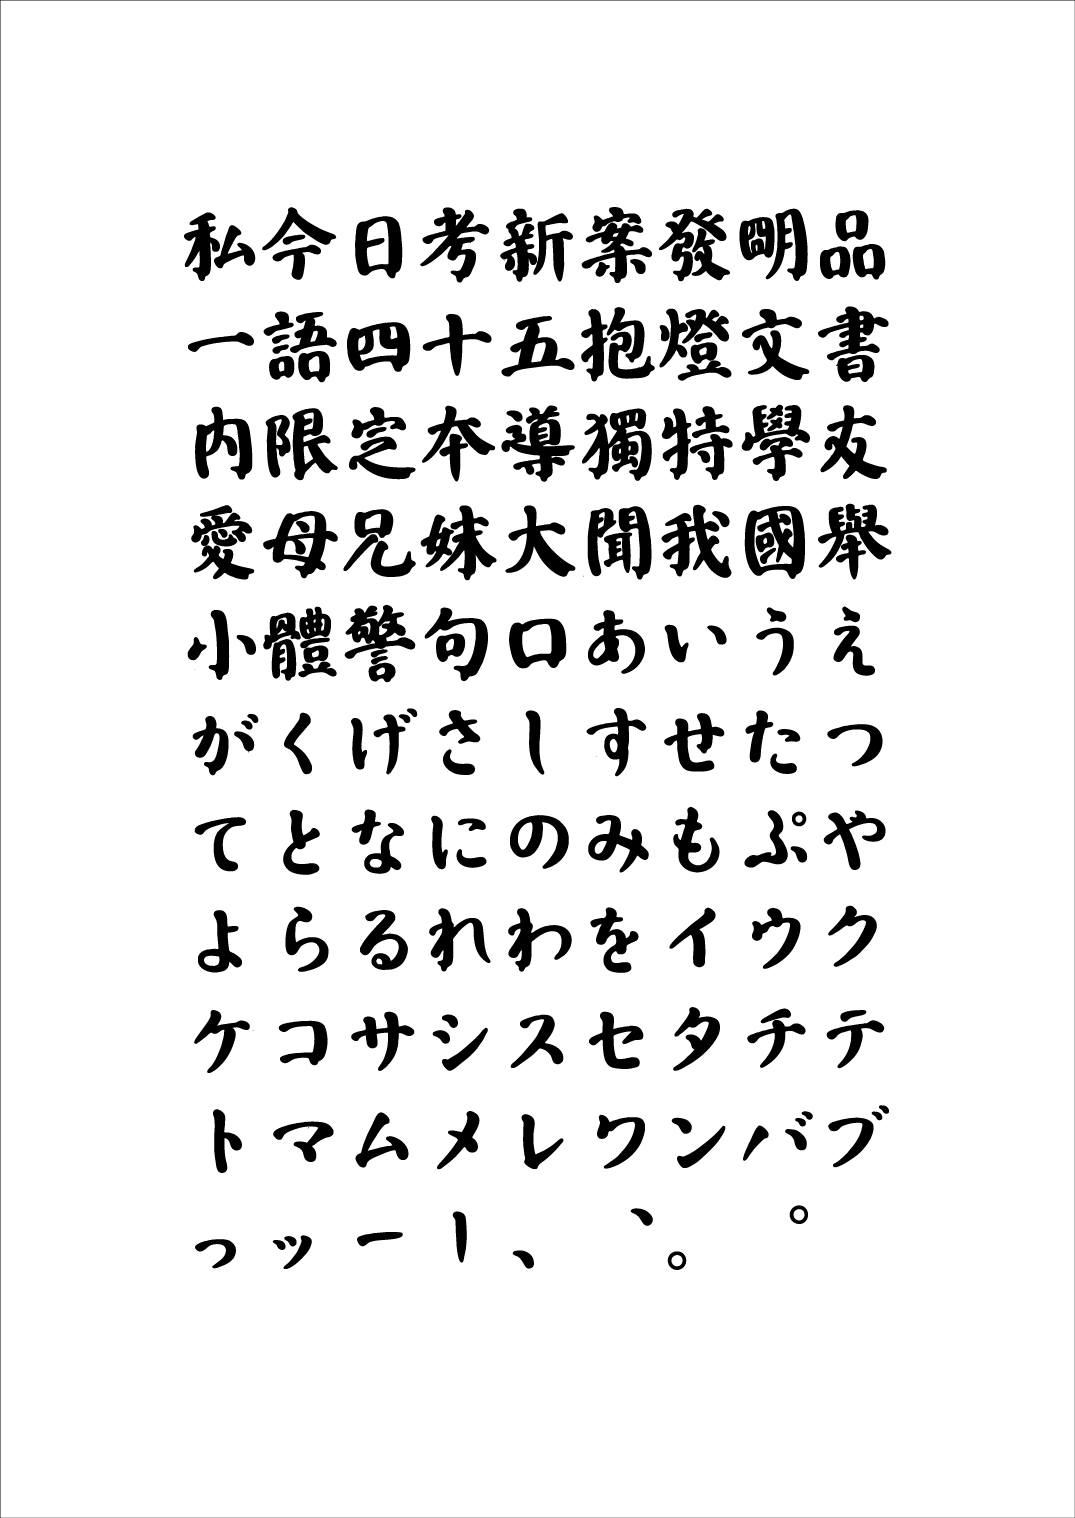 私今日考新案發明品
一語四十五抱燈文書
内限定本導獨特學友
愛母兄妹大聞我國舉
小體警句口あいうえ
がくげさしすせたつ
てとなにのみもぷや
よらるれわをイウク
ケコサシスセタチテ
トマムメレワンバブ
っッー｜、、。。